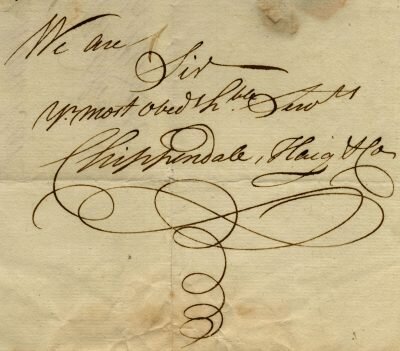 We are
Sir
Yr. most obedt hble Servts
Chippendale, Haig & Co